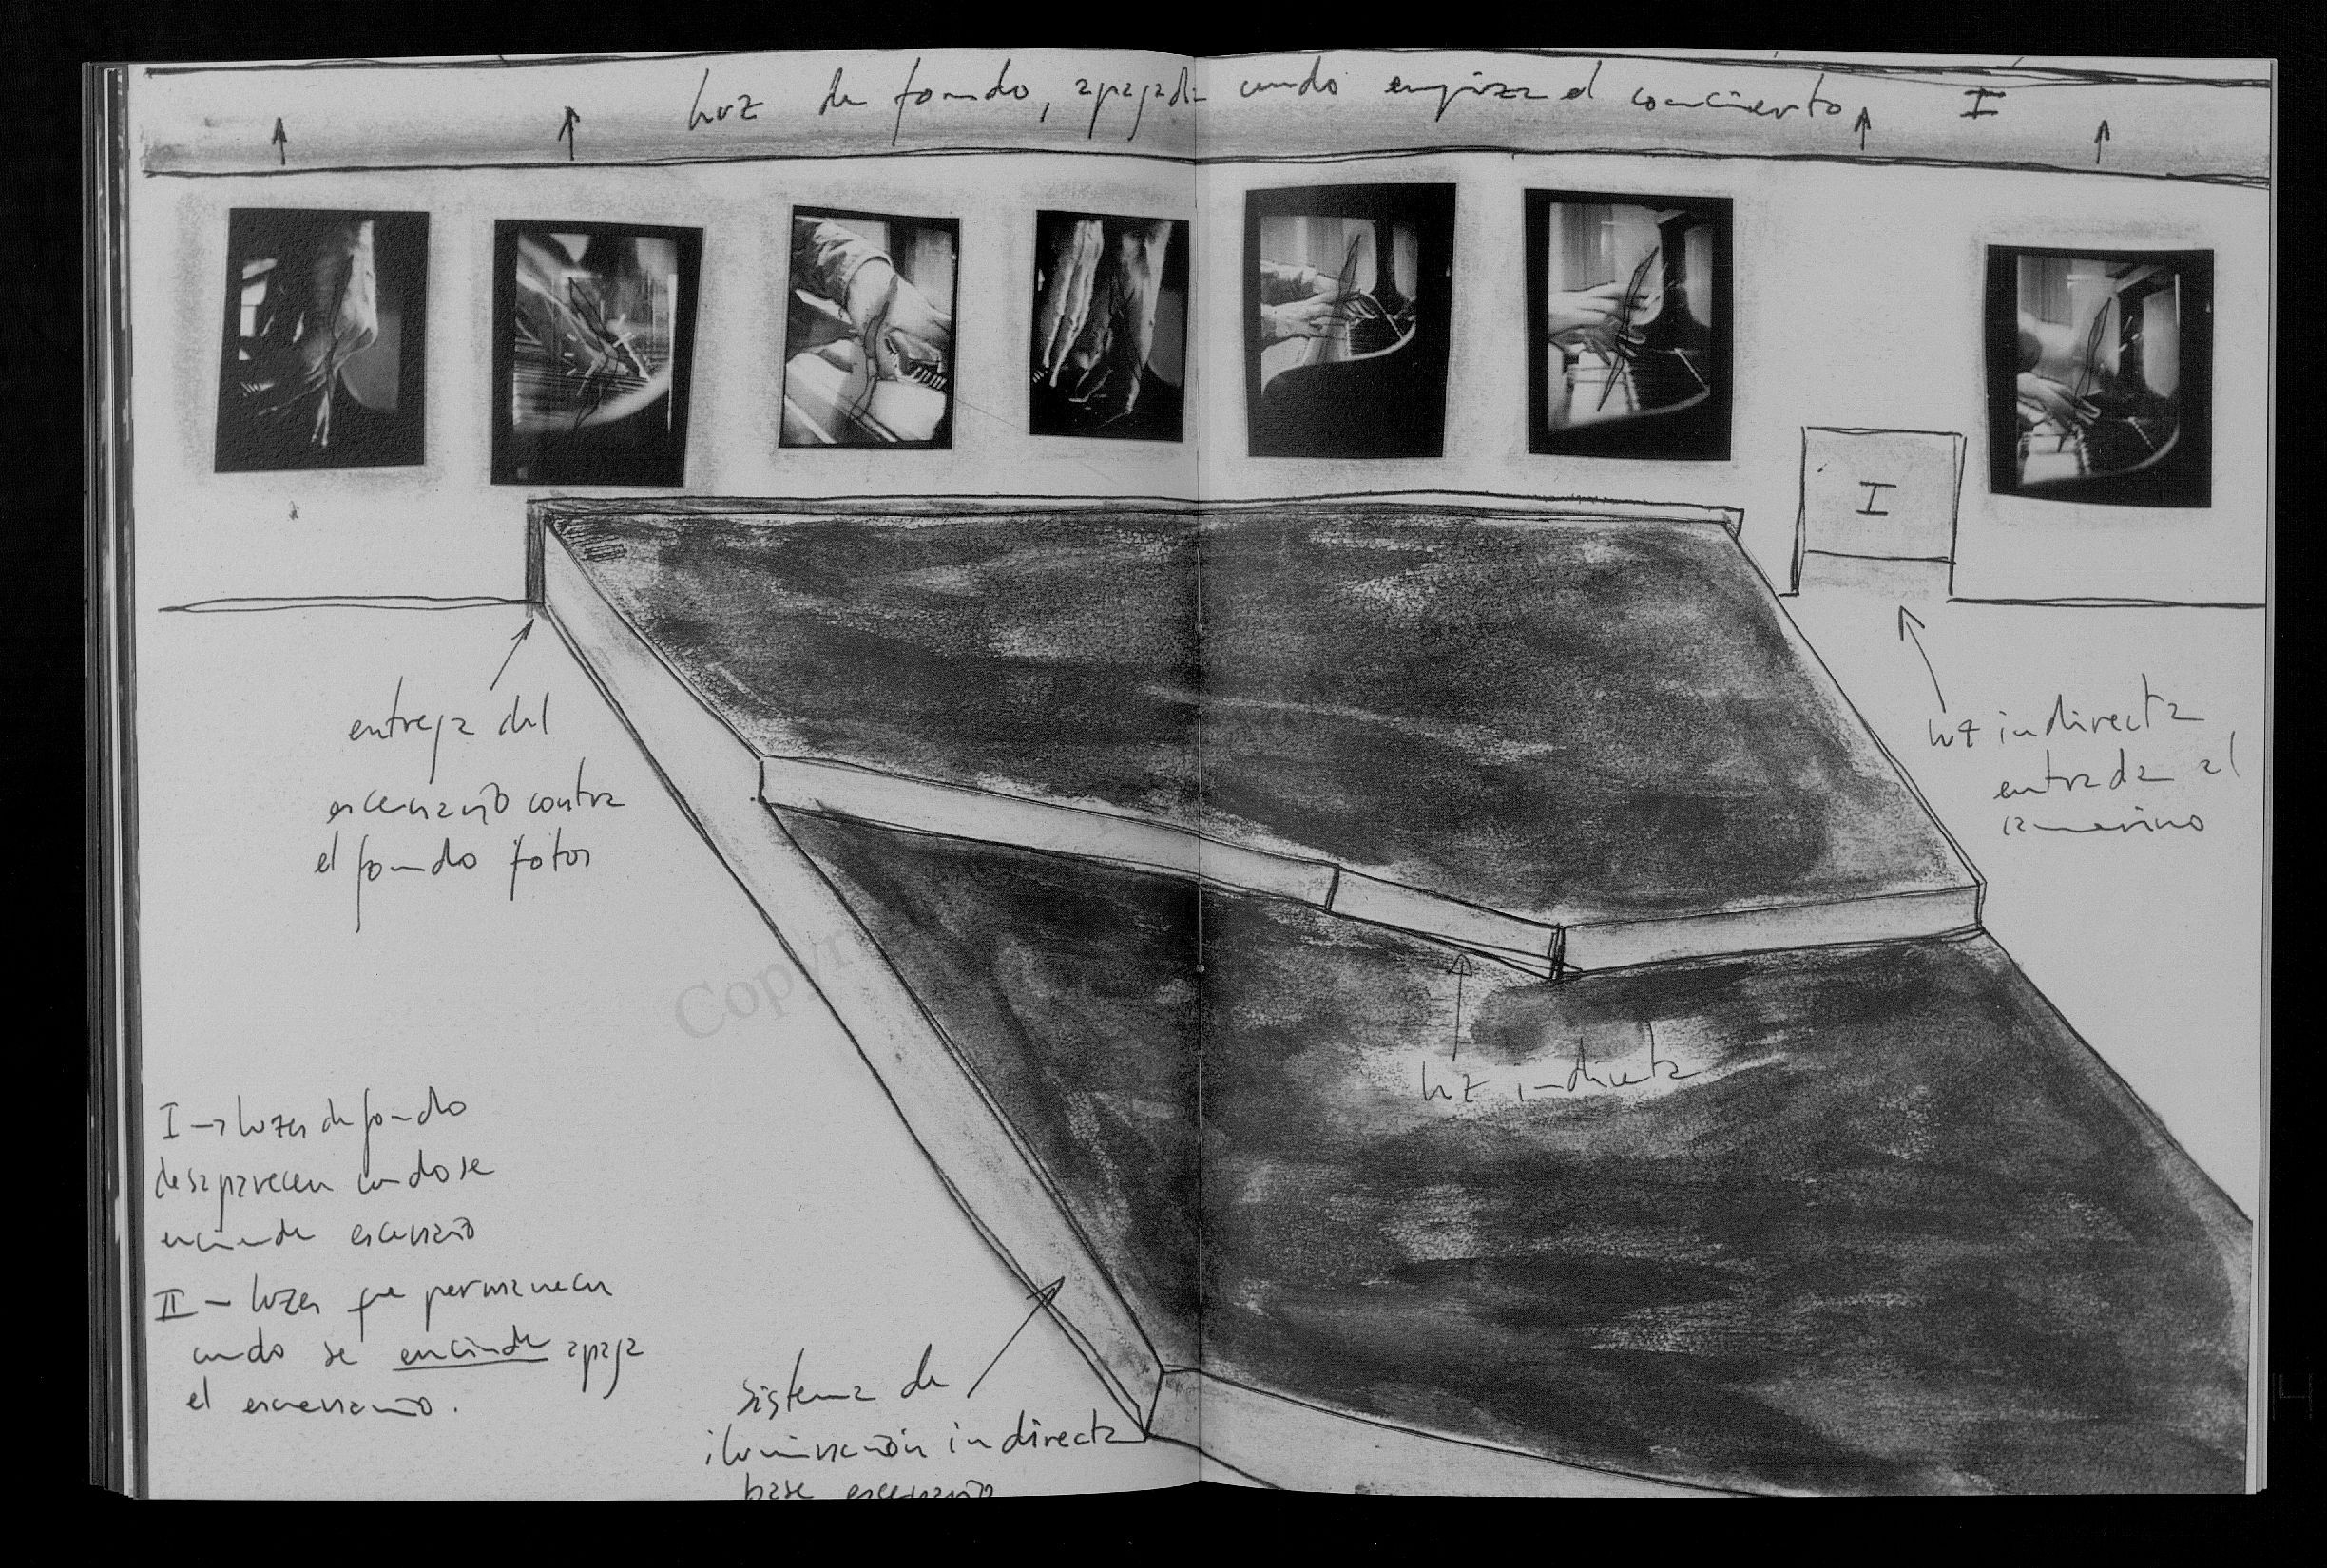 luz de fondo, apagada cuando empieza el concierto I
I
entrega del
escenario contra
el fondo fotos
luz indirecta
entrada al
camerino
luz indirecta
I → luces de fondo
desaparecen cuando se
enciende escenario
II – luces que permanecen
cuando se enciende apaga
el escenario.
sistema de
iluminación indirecta
base escenario
Copyr